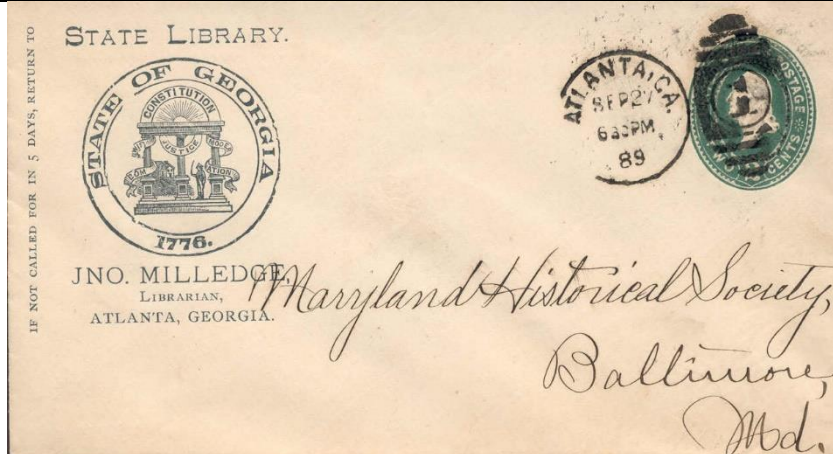 IF NOT CALLED FOR IN 5 DAYS, RETURN TO
STATE LIBRARY.
STATE OF GEORGIA
CONSTITUTION
JUSTICE
1776.
JNO. MILLEDGE,
LIBRARIAN,
ATLANTA, GEORGIA.
ATLANTA, GA.
SEP 27
630PM
89
POSTAGE
TWO CENTS
Maryland Historical Society,
Baltimore,
Md.